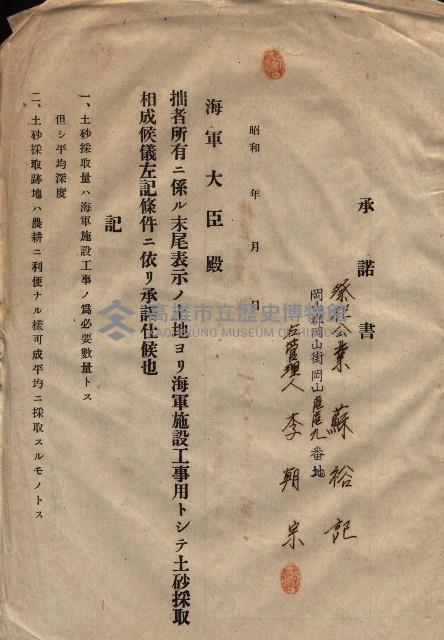 承諾書
祭祀公業 蘇裕記
岡山郡岡山街岡山 九番地
右管理人 李朝宗
昭和 年 月 日
海軍大臣殿
拙者所有ニ係ル末尾表示ノ土地ヨリ海軍施設工事用トシテ土砂採取
相成候儀左記條件ニ依リ承諾仕候也
記
一、土砂採取量ハ海軍施設工事ノ爲必要數量トス
但シ平均深度
二、土砂採取跡地ハ農耕ニ利便ナル樣可成平均ニ採取スルモノトス
高雄市立歷史博物館
KAOHSIUNG MUSEUM OF HISTORY